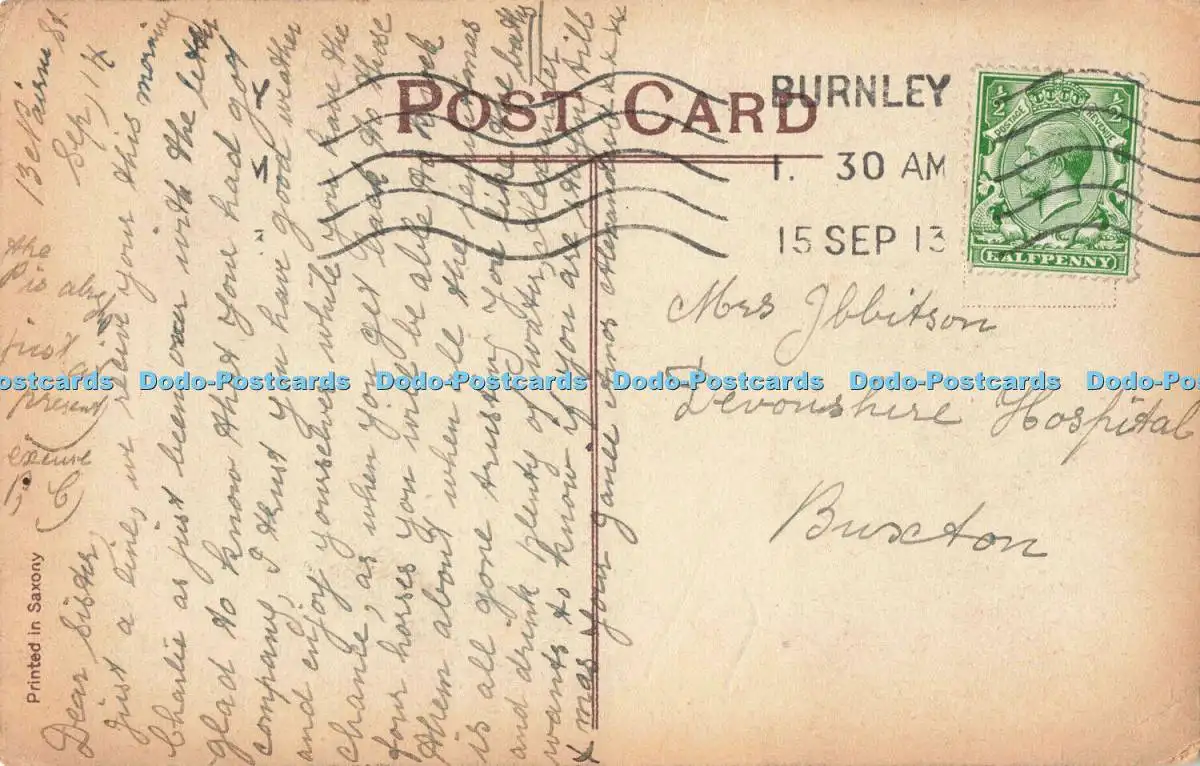 POST CARD
BURNLEY
1. 30 AM
15 SEP 13
POSTAGE REVENUE
½ ½
HALFPENNY
Mrs Ibbitson
Devonshire Hospital
Buxton
13 Nairne St
Sep 14
Dear Sister
Just a line, we recive yours this morning
Charlie as just been over with the letter
glad to know that you had got
company, I trust you have good weather
and enjoy yourselves while you have the
chance, as when you get back to those
four horses you will be able to knock
them about when all the
is all gone trusting you like the baths
and drink plenty of water, Alexander
wants to know if you are stayin till
x mas Your Janie and Alexander x x x x x
the
P is alright
just
at
present
excuse
P. C
Printed in Saxony
Dodo-Postcards Dodo-Postcards Dodo-Postcards Dodo-Postcards Dodo-Postcards Dodo-Postcards